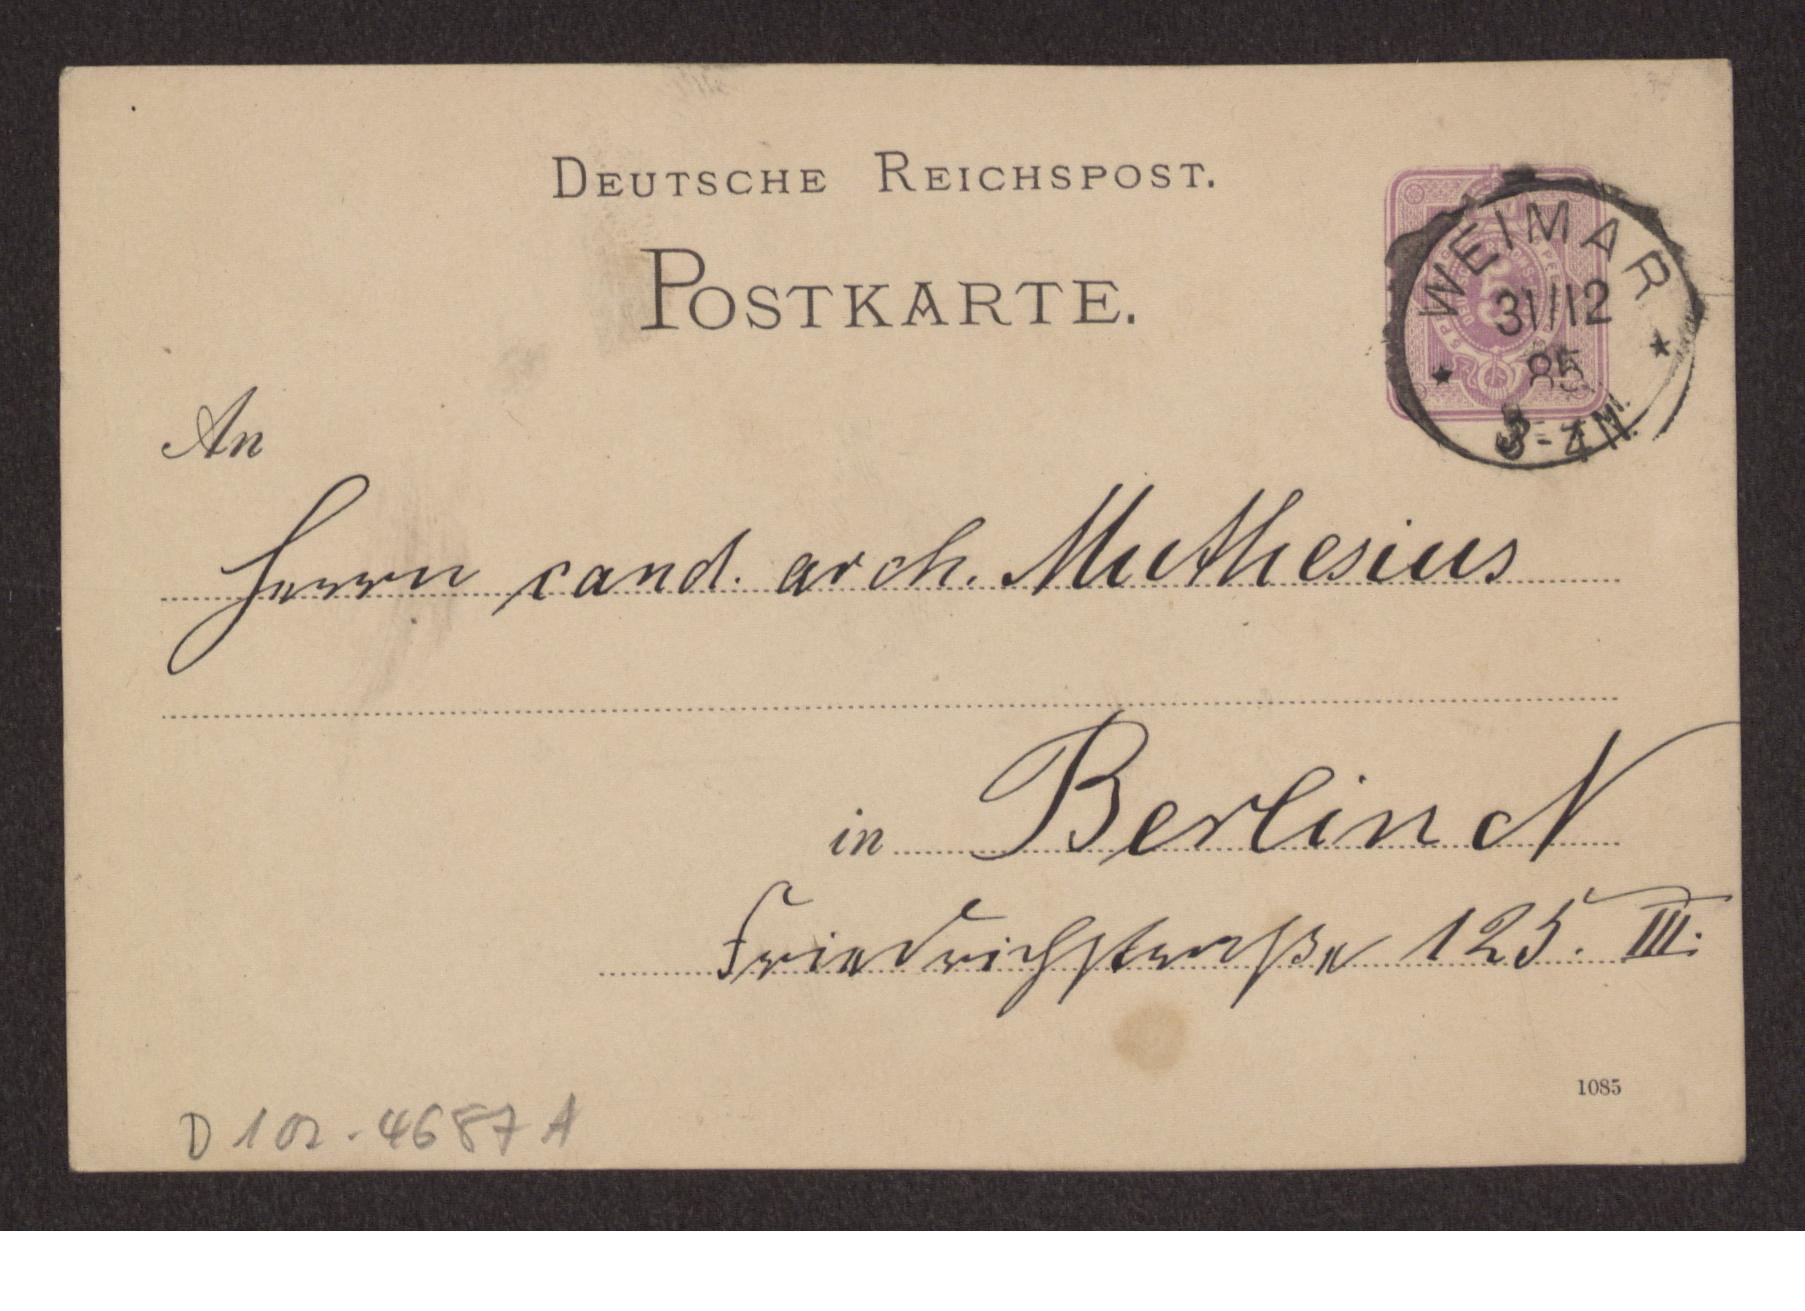 DEUTSCHE REICHSPOST.
POSTKARTE.
WEIMAR
31/12
85
3-4 N.
An
Herrn cand. arch. Muthesius
in Berlin N
Friedrichstraße 125. III.
1085
D 102-4687 A